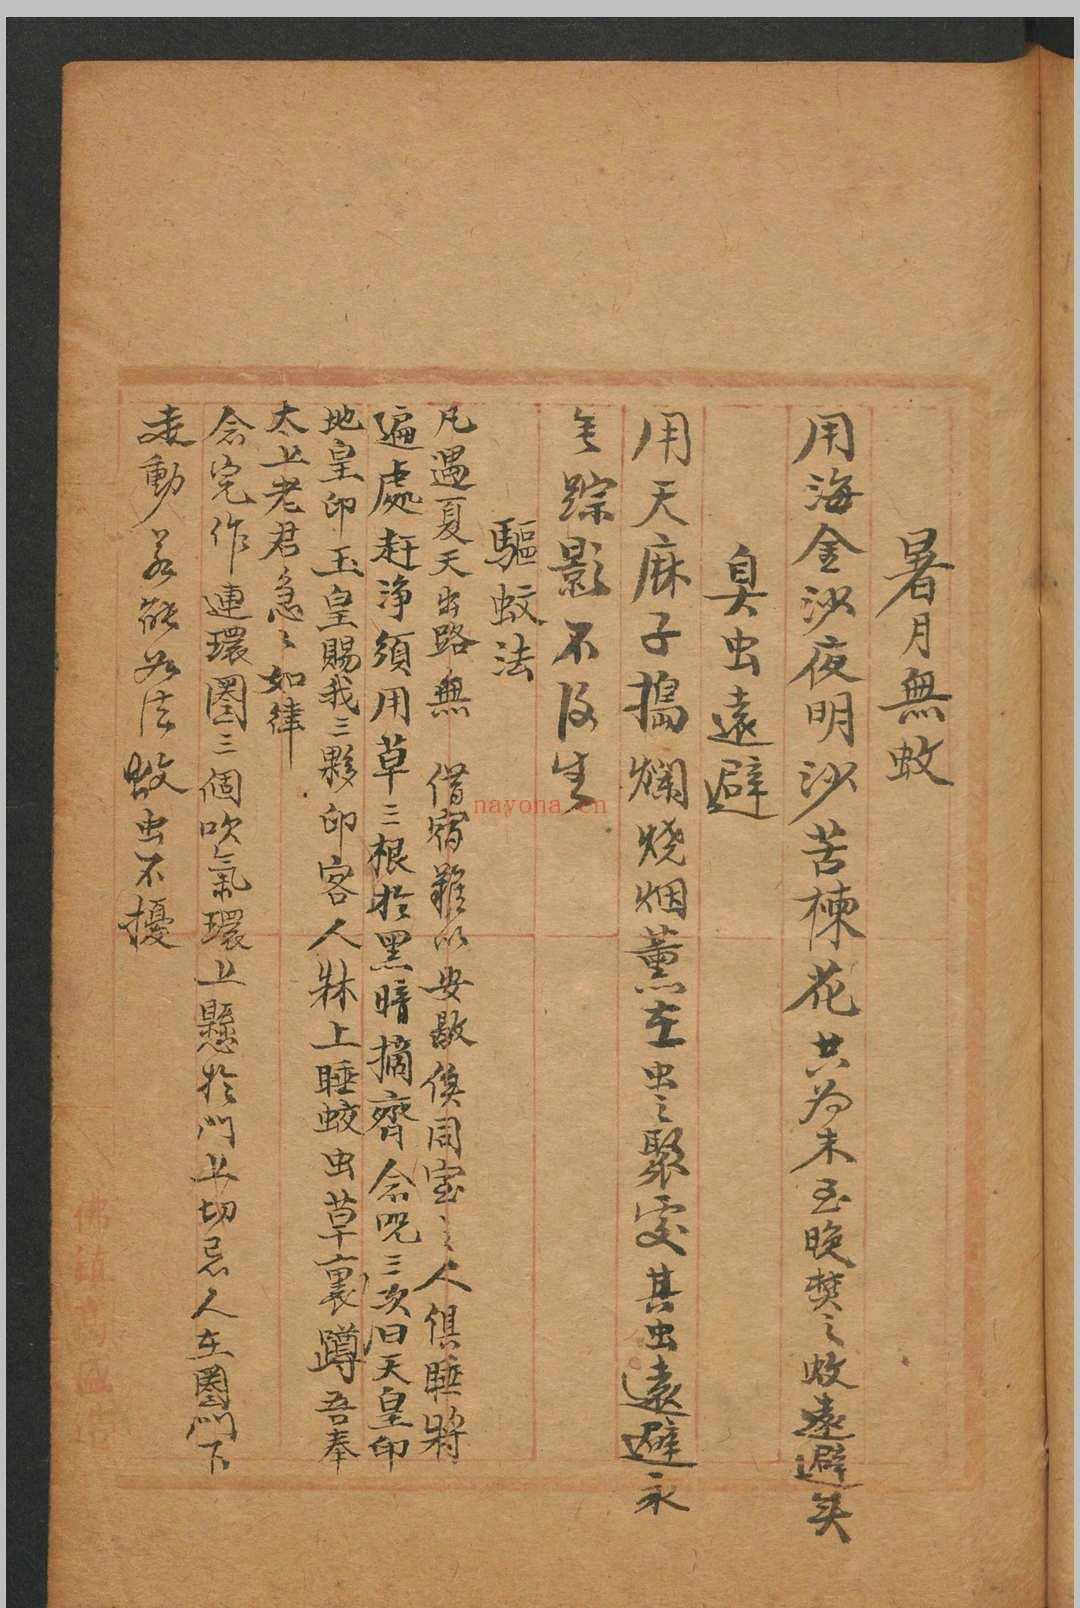 暑月無蚊
用海金沙夜明沙苦楝花共為末至晚焚之蚊遠避矣
臭虫遠避
用天麻子搗爛燒烟薰在虫之聚處其虫遠避永
無踪影不復生
驅蚊法
凡遇夏天出路無 借宿難以安歇俟同室之人俱睡將
遍處赶净須用草三根於黑暗摘齊念咒三次曰天皇印
地皇印玉皇賜我三夥印客人牀上睡蛟虫草裏蹲吾奉
太上老君急〻如律
念完作連環圈三個吹氣環上懸於門上切忌人在圈門下
走動若能如法蚊虫不擾
nayona.cn